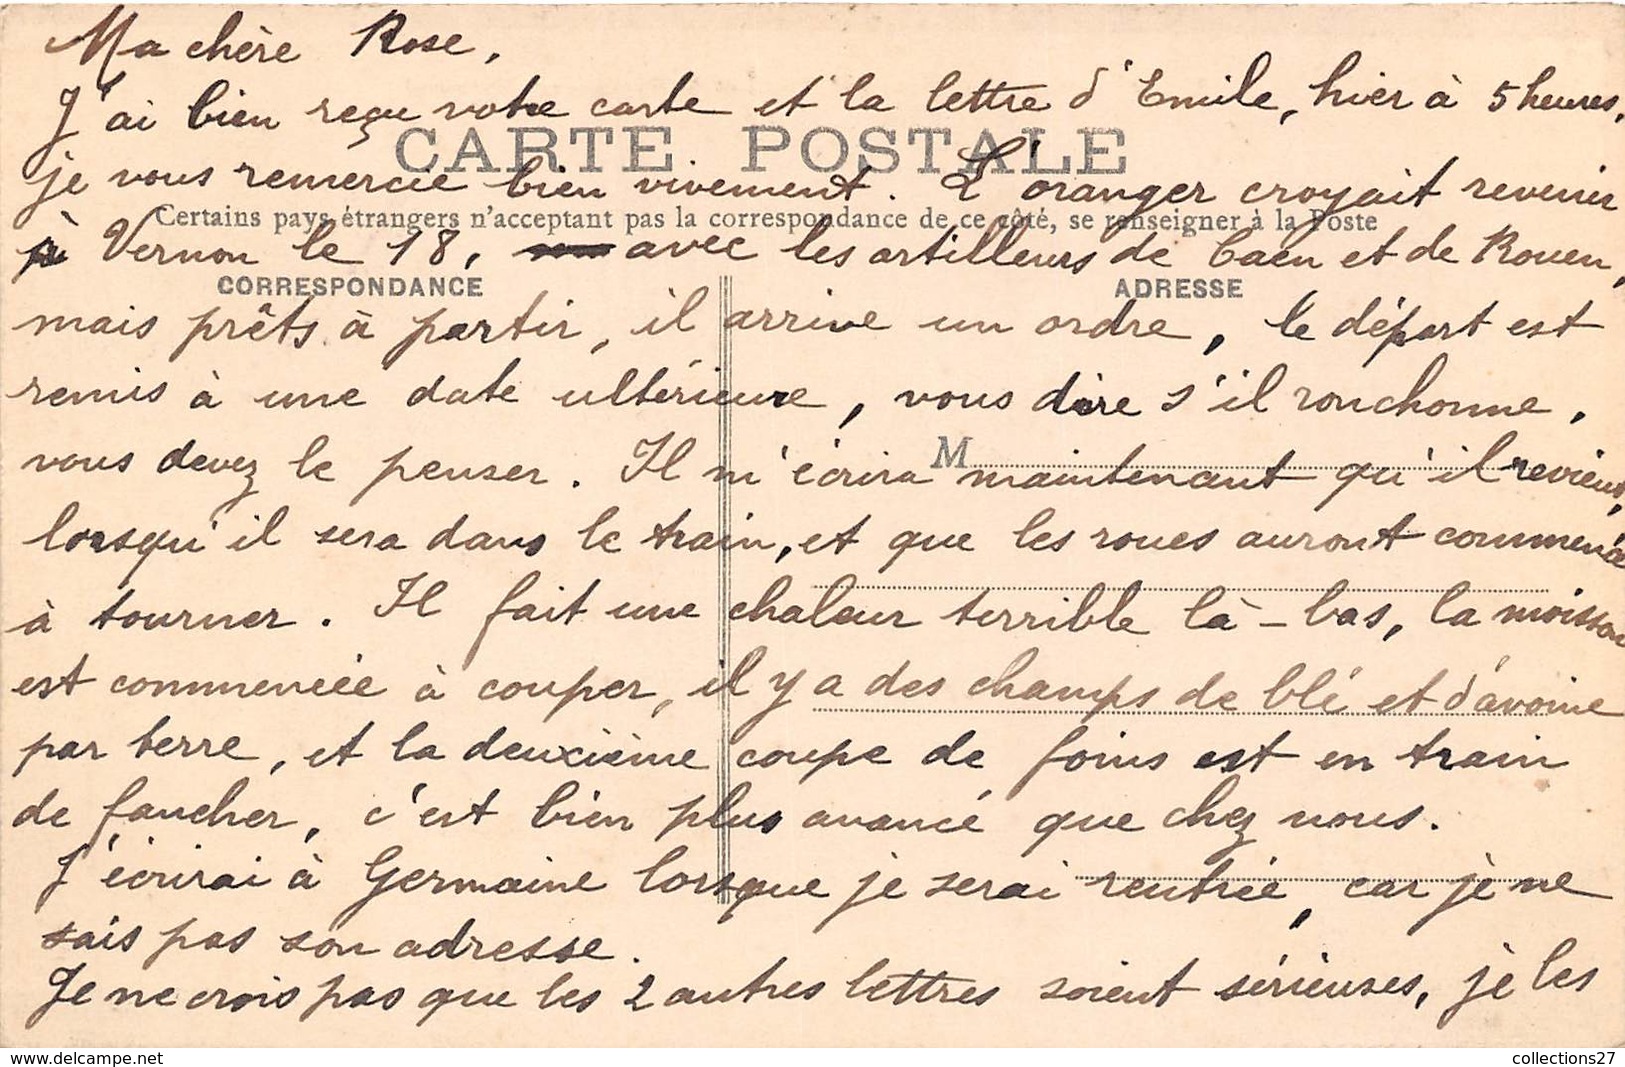 Ma chère Rose,
J'ai bien reçu votre carte et la lettre d'Emile, hier à 5 heures,
CARTE POSTALE
je vous remercie bien vivement. L'oranger croyait revenir
Certains pays étrangers n'acceptant pas la correspondance de ce côté, se renseigner à la Poste
à Vernon le 18, avec les artilleurs de Caen et de Rouen,
CORRESPONDANCE
ADRESSE
mais prêts à partir, il arrive un ordre, le départ est
remis à une date ultérieure, vous dire s'il ronchonne,
M
vous devez le penser. Il m'écrira maintenant qu'il revient,
lorsqu'il sera dans le train, et que les roues auront commencé
à tourner. Il fait une chaleur terrible là-bas, la moisson
est commencée à couper, il y a des champs de blé et d'avoine
par terre, et la deuxième coupe de foins est en train
de faucher, c'est bien plus avancé que chez nous.
J'écrirai à Germaine lorsque je serai rentrée, car je ne
sais pas son adresse.
Je ne crois pas que les 2 autres lettres soient sérieuses, je les
collections27